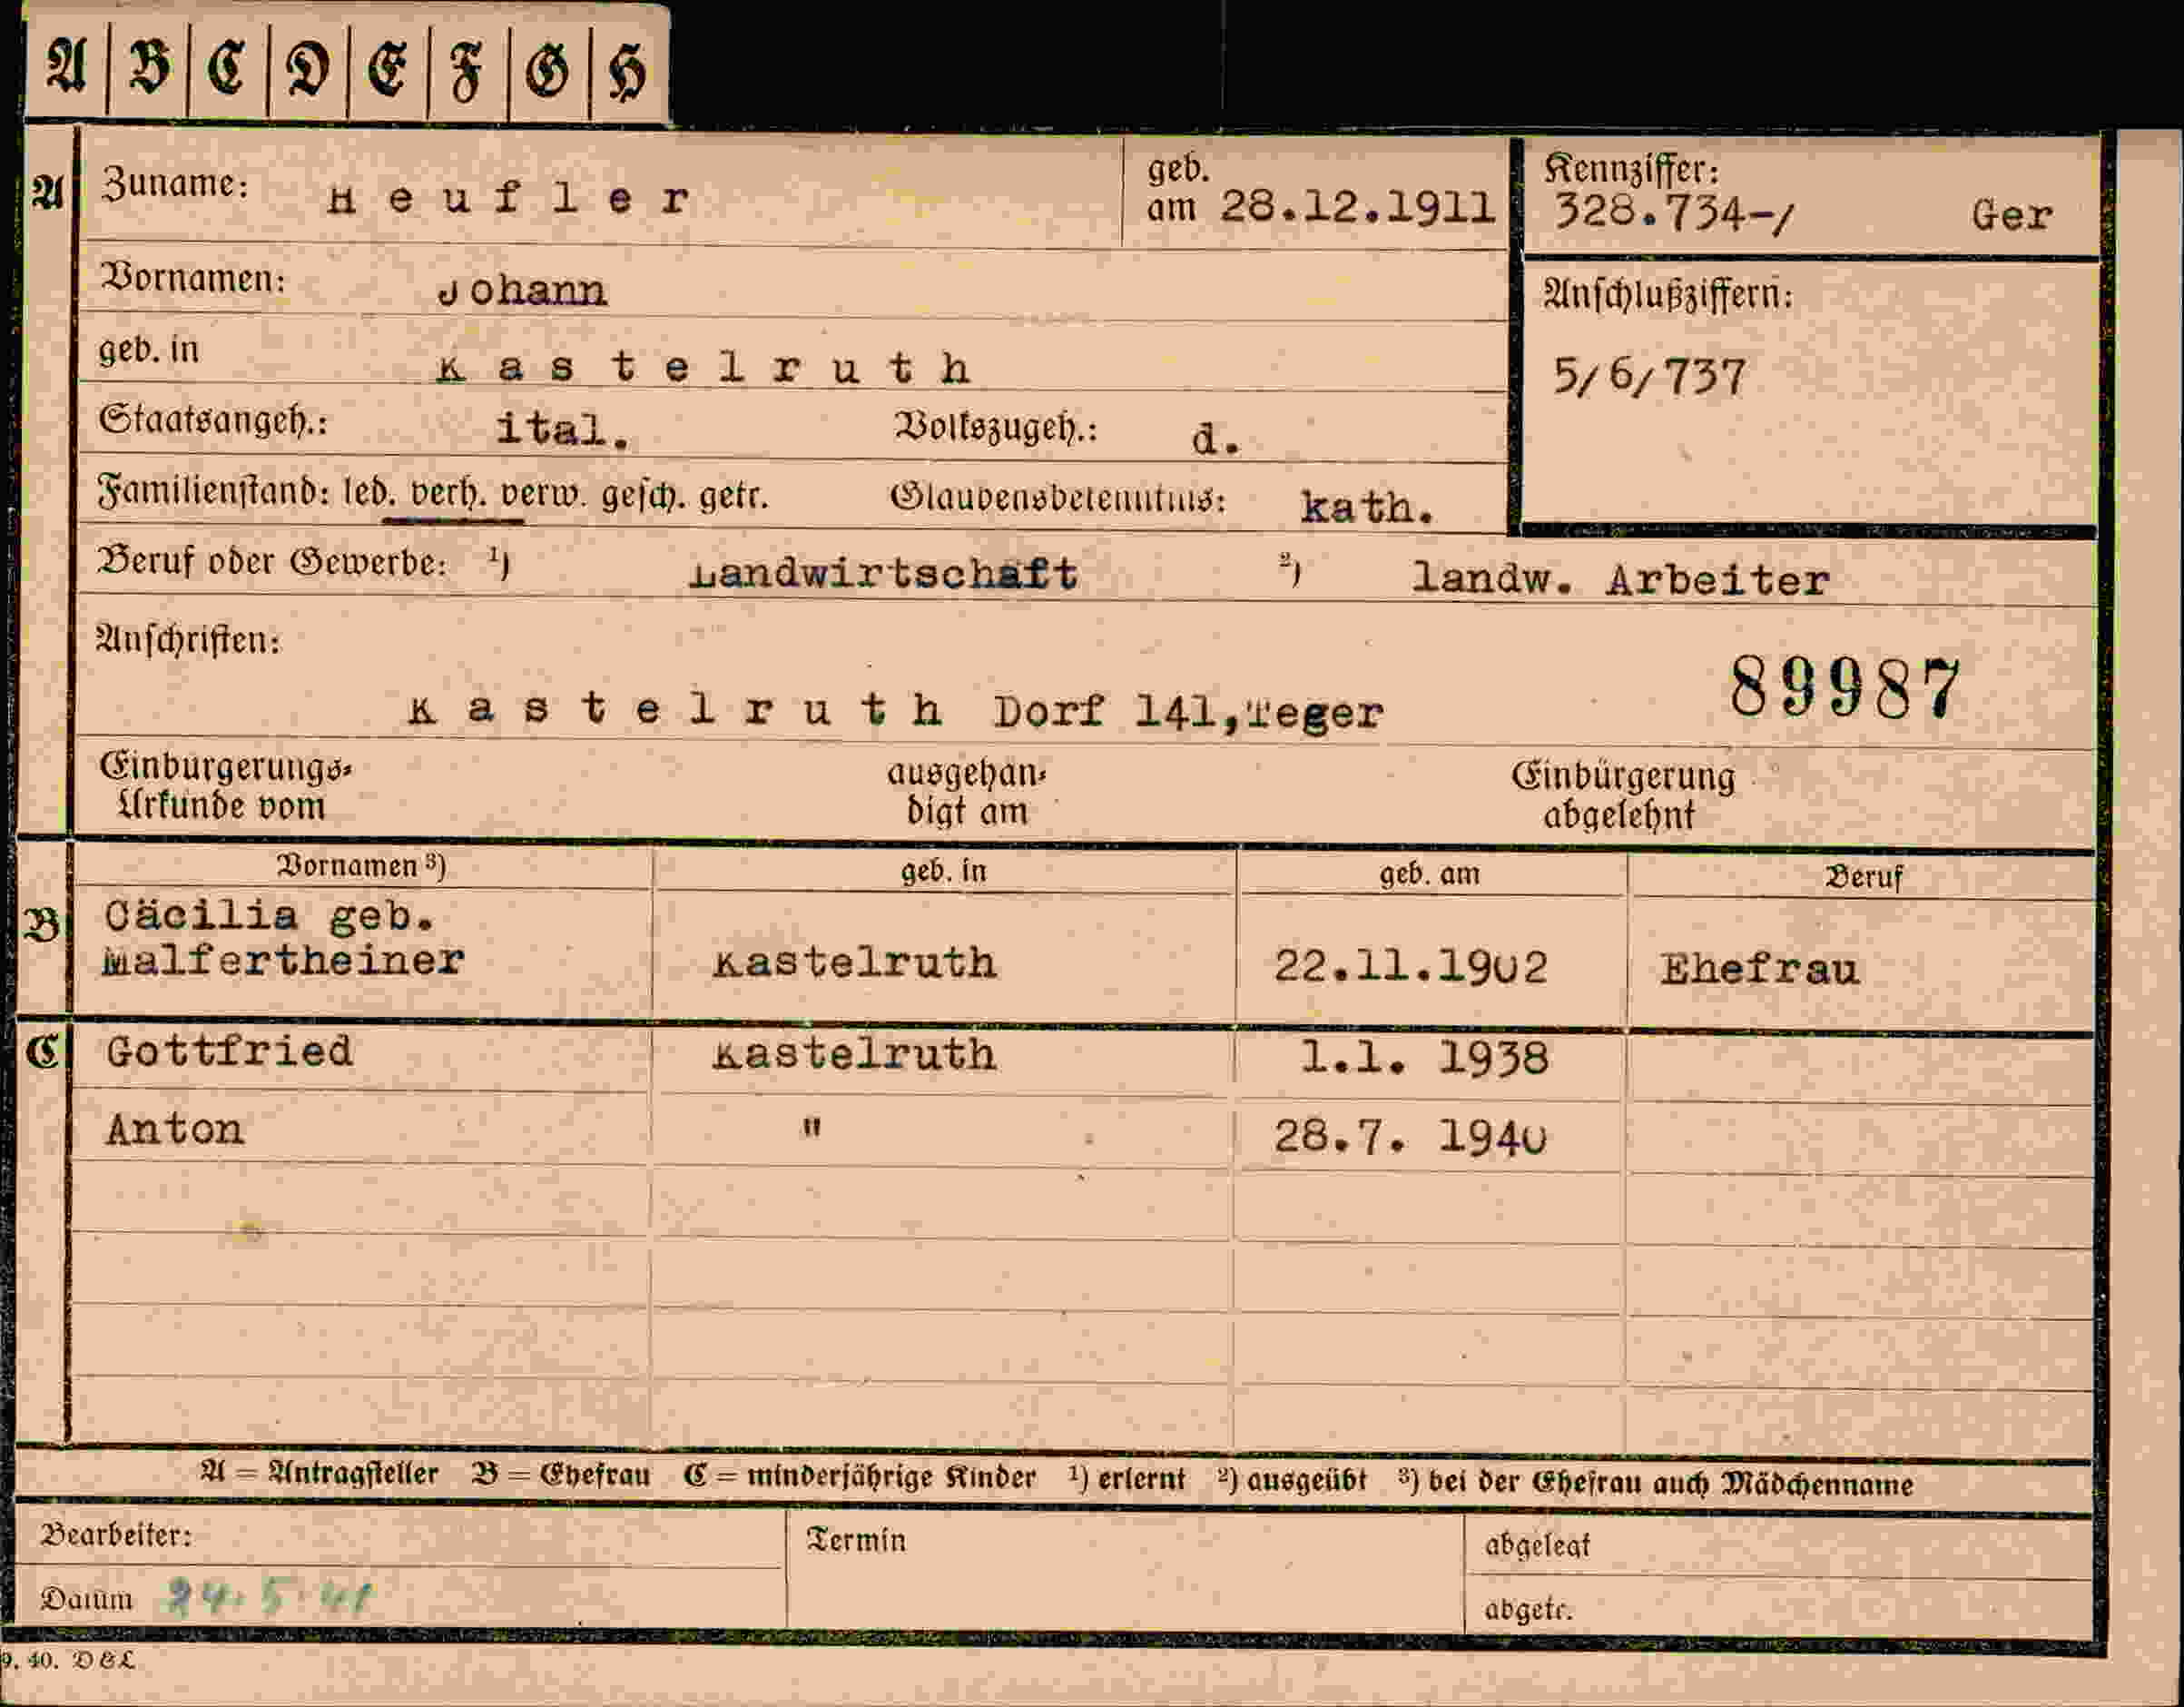 A B C D E F G H
A Zuname: Heufler geb. am 28.12.1911 Kennziffer: 328.734-/ Ger
Vornamen: Johann Anschlußziffern:
geb. in Kastelruth 5/6/737
Staatsangeh.: ital. Volkszugeh.: d.
Familienstand: led. verh. verw. gesch. getr. Glaubensbekenntnis: kath.
Beruf oder Gewerbe: 1) Landwirtschaft 2) landw. Arbeiter
Anschriften:
89987
Kastelruth Dorf 141, Teger
Einbürgerungs- ausgehän- Einbürgerung
Urkunde vom digt am abgelehnt
Vornamen 3) geb. in geb. am Beruf
B Cäcilia geb.
Malfertheiner Kastelruth 22.11.1902 Ehefrau
C Gottfried Kastelruth 1.1. 1938
Anton " 28.7. 1940
A = Antragsteller B = Ehefrau C = minderjährige Kinder 1) erlernt 2) ausgeübt 3) bei der Ehefrau auch Mädchenname
Bearbeiter: Termin abgelegt
Datum 24.5.41 abgetr.
9. 40. D & L